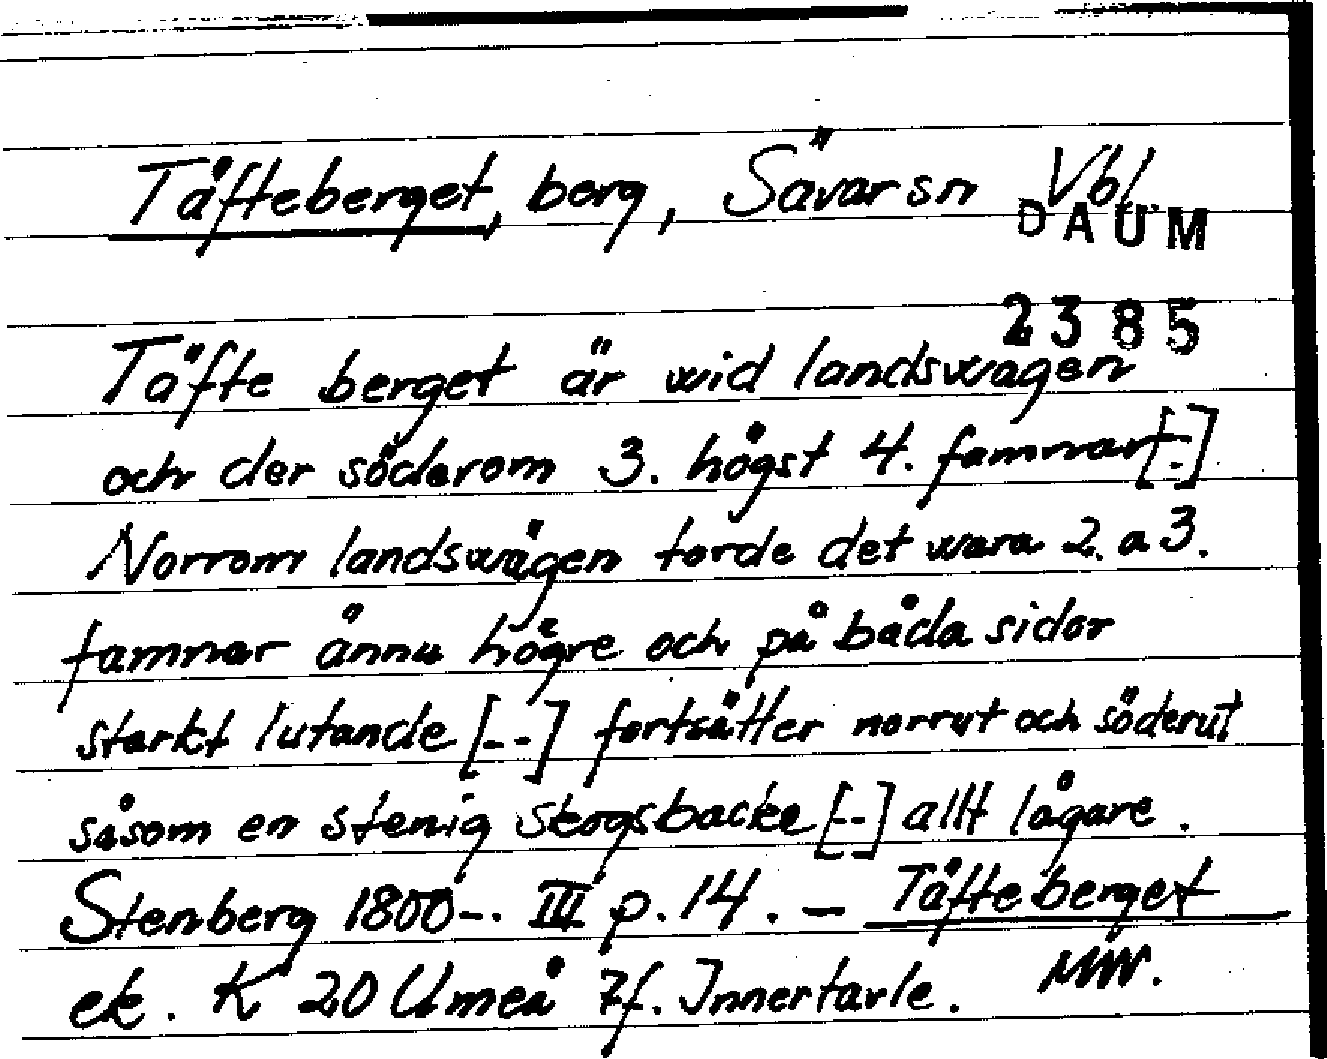 Täfteberget, berg, Sävar sn Vbl.
DAUM
2385
Täfte berget är wid landswagen
och der söderom 3. högst 4. famnar [-]
Norrom landswägen torde det wara 2. a 3.
famnar ännu högre och på båda sidor
starkt lutande [--] fortsätter norrut och söderut
såsom en stenig skogsbacke [--] allt lägare.
Stenberg 1800-. III p. 14. – Täfteberget
ek. K 20 Umeå 7f. Innertavle. MW.